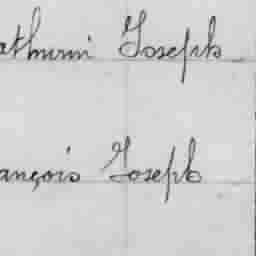 athurin Joseph
ançois Joseph